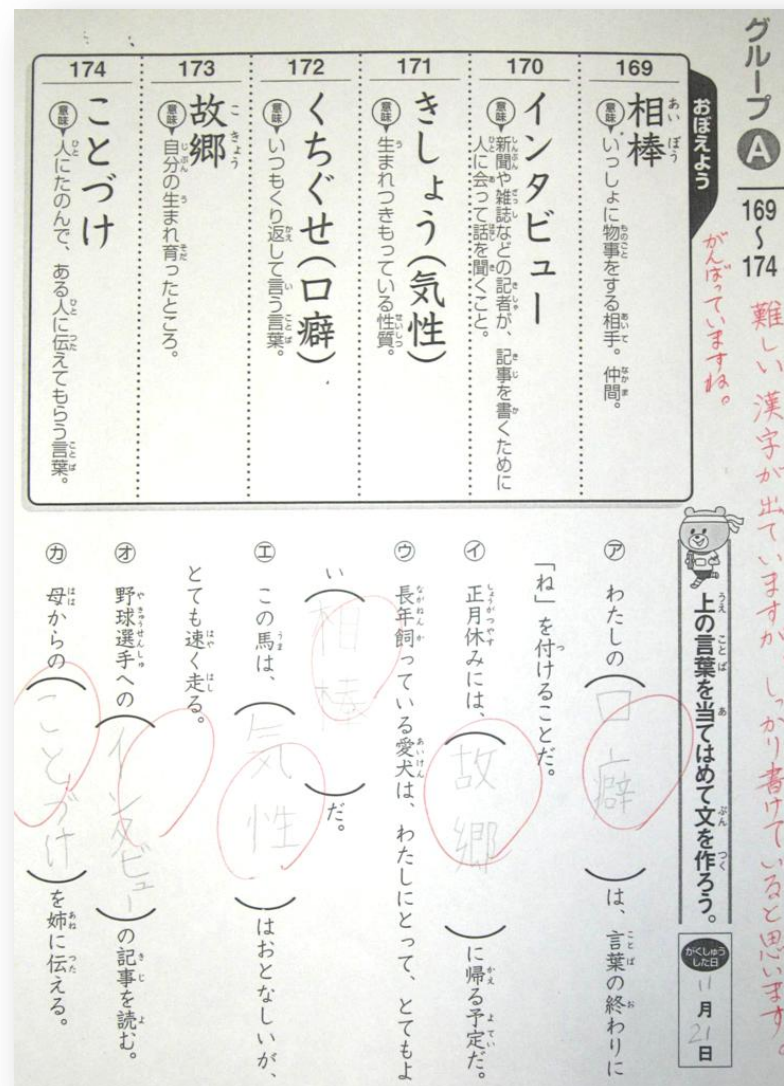 グループA
169〜174
難しい漢字が出ていますが、しっかり書けていると思います。
がんばっていますね。
おぼえよう
169
相棒
あいぼう
意味 いっしょに物事をする相手。仲間。
170
インタビュー
意味 新聞や雑誌などの記者が、記事を書くために
人に会って話を聞くこと。
171
きしょう(気性)
意味 生まれつきもっている性質。
172
くちぐせ(口癖)
意味 いつもくり返して言う言葉。
173
故郷
こきょう
意味 自分の生まれ育ったところ。
174
ことづけ
意味 人にたのんで、ある人に伝えてもらう言葉。
上の言葉を当てはめて文を作ろう。
がくしゅうした日
11月21日
ア わたしの(口癖)は、言葉の終わりに
「ね」を付けることだ。
イ 正月休みには、(故郷)に帰る予定だ。
ウ 長年飼っている愛犬は、わたしにとって、とてもよ
い(相棒)だ。
エ この馬は、(気性)はおとなしいが、
とても速く走る。
オ 野球選手への(インタビュー)の記事を読む。
カ 母からの(ことづけ)を姉に伝える。